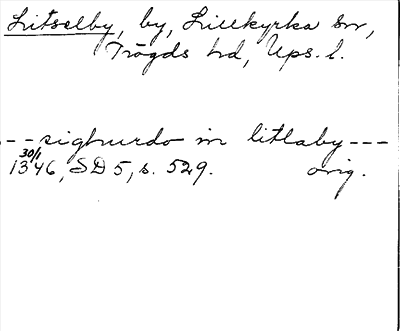 Litselby, by, Lillkyrka sn,
Trögds hd, Ups. l.
---sighurdo in litlaby---
30/1
1346, SD 5, s. 529. orig.